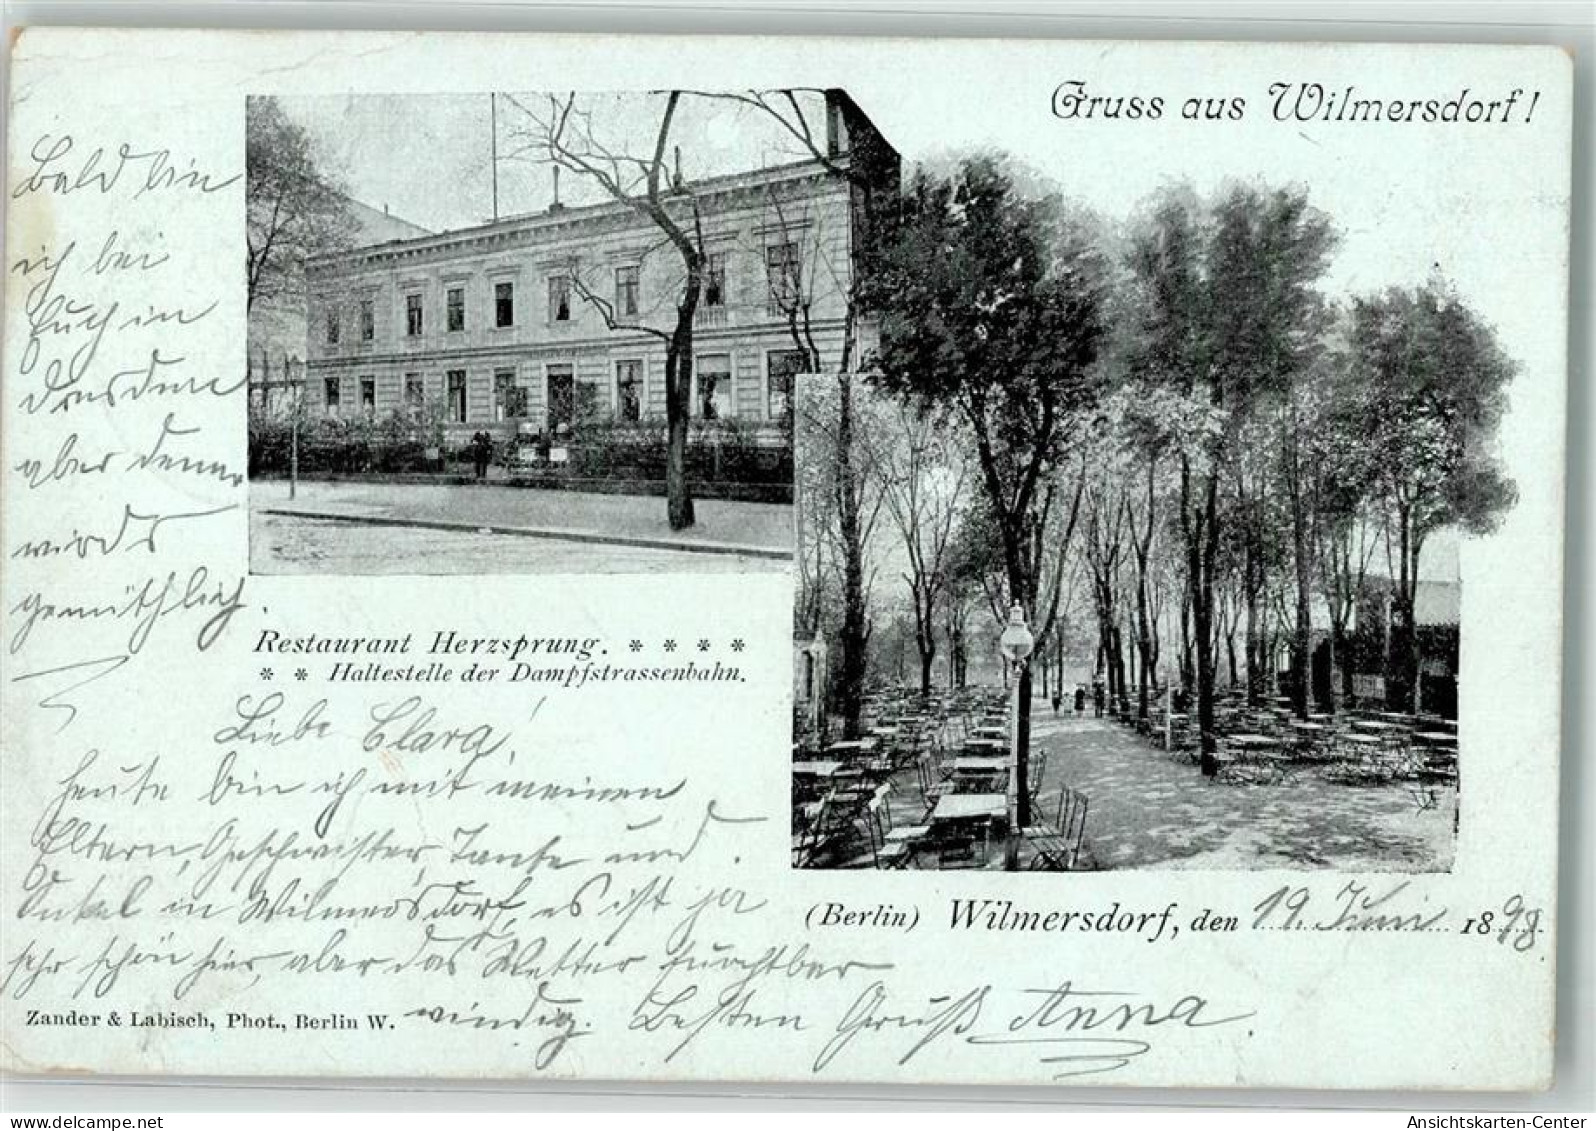 Gruss aus Wilmersdorf!
Restaurant Herzsprung. * * * *
* * Haltestelle der Dampfstrassenbahn.
(Berlin) Wilmersdorf, den 19. Juni 1898.
Liebe Clara!
heute bin ich mit meinen
Eltern, Geschwister, Tante und
Onkel in Wilmersdorf, es ist ja
sehr schön hier, aber das Wetter furchtbar
windig. Besten Gruß Anna.
Bald bin
ich bei
Euch in
Dresden
aber dann
wirds
gemüthlich.
Zander & Labisch, Phot., Berlin W.
Ansichtskarten-Center